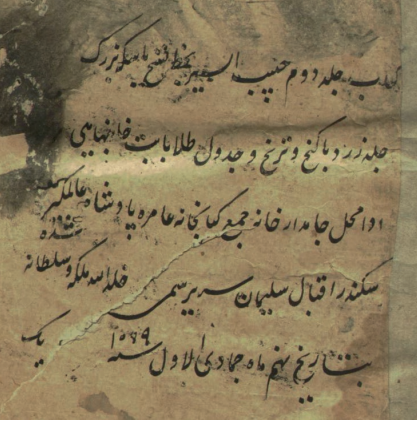 کتاب جلد دوم حبیب السیر بخط نسخ یا مسکه بزرک
جلد زرد با کنج و ترنج و جدول طلا بابت خانجهانی
از محل جامدار خانه جمع کتابخانه عامره پادشاه عالمگیر شده
سکندر اقبال سلیمان سریر سمی خلد الله ملکه و سلطانه
بتاریخ نهم ماه جمادی الاول سنه ۱۰۶۹ یک